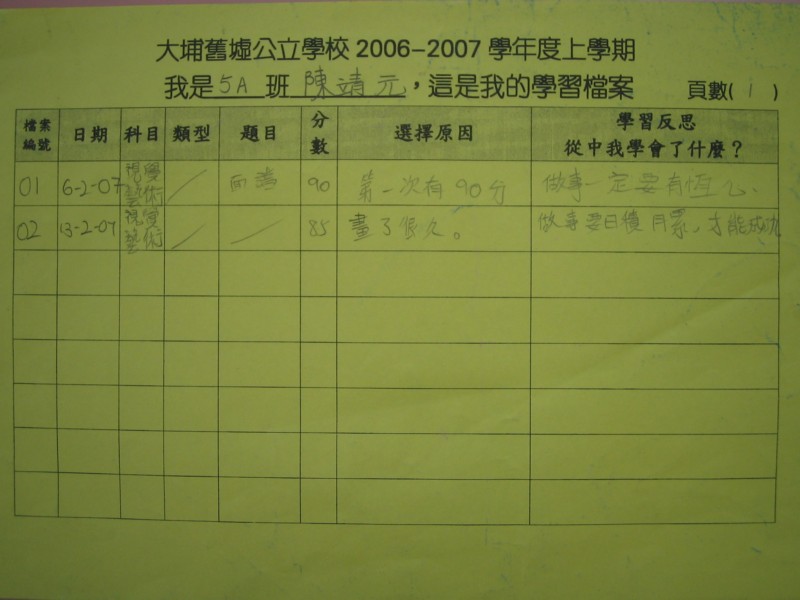 大埔舊墟公立學校 2006-2007 學年度上學期
我是 5A 班 陳靖元，這是我的學習檔案 頁數( 1 )
檔案編號 日期 科目 類型 題目 分數 選擇原因 學習反思 從中我學會了什麼？
01 6-2-07 視學藝術 ／ 面譜 90 第一次有90分 做事一定要有恆心、
02 13-2-07 視覺藝術 ／ ／ 85 畫了很久。 做事要日積月累，才能成功